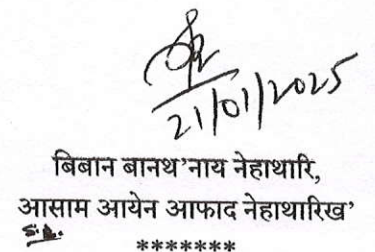 21/01/2025
बिबान बानथ'नाय नेहाथारि,
आसाम आयेन आफाद नेहाथारिख'
S.D.
*******